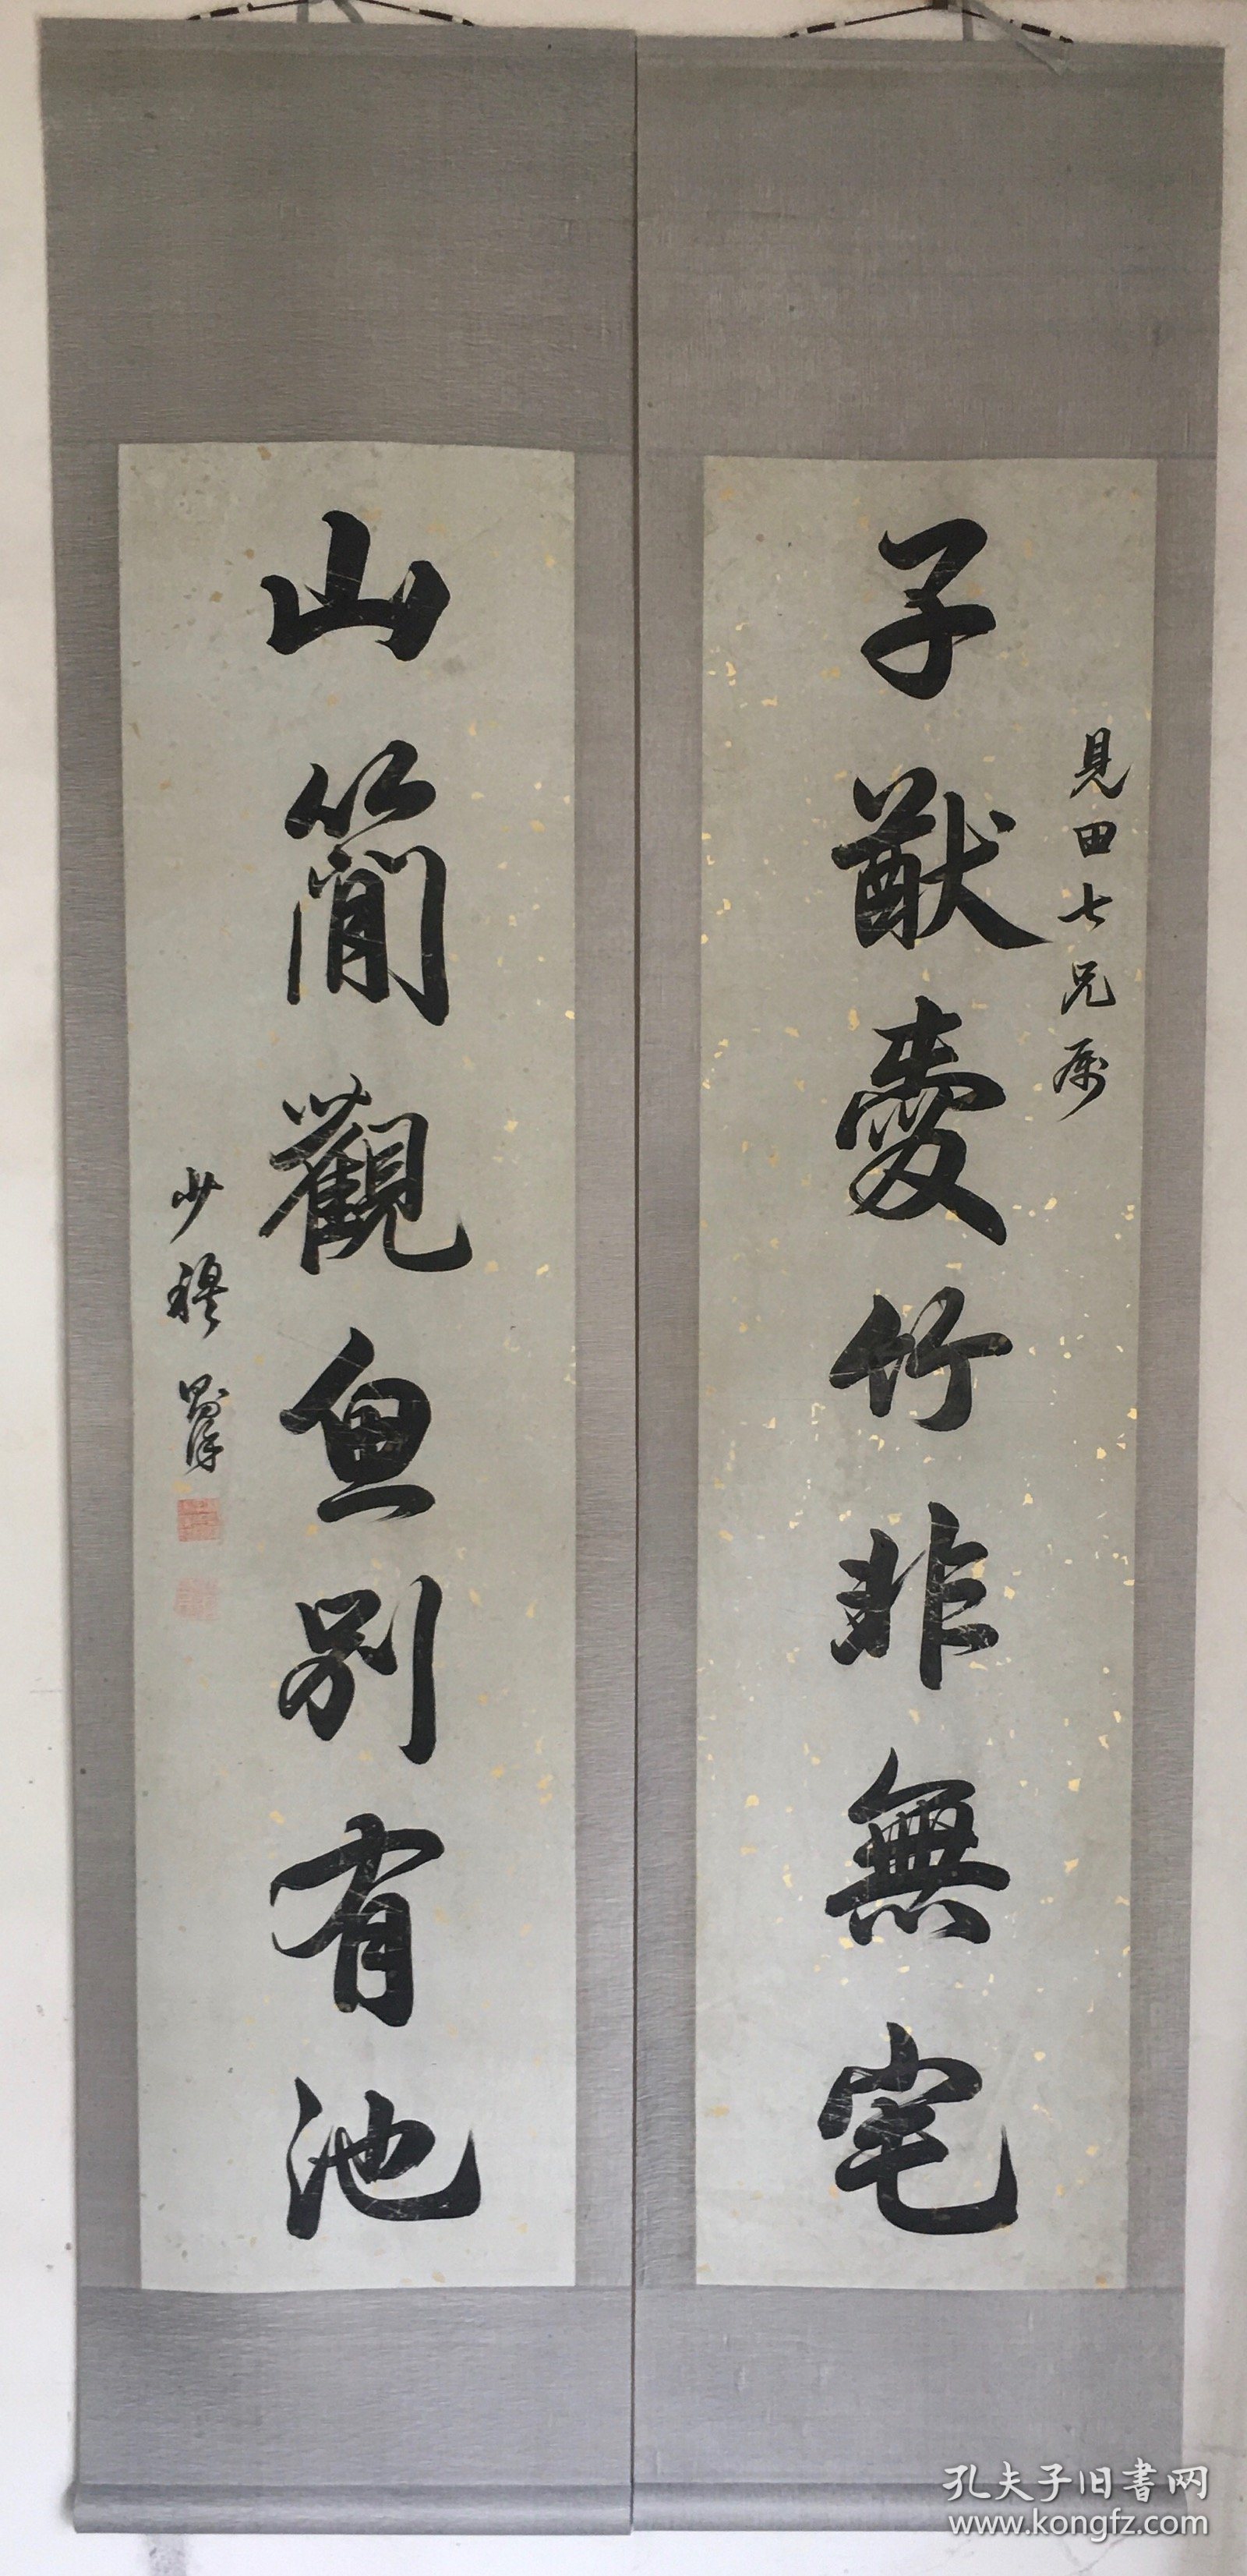 子猷愛竹非無宅
見田七兄屬
山簡觀魚別有池
少穆
孔夫子旧書网
www.kongfz.com